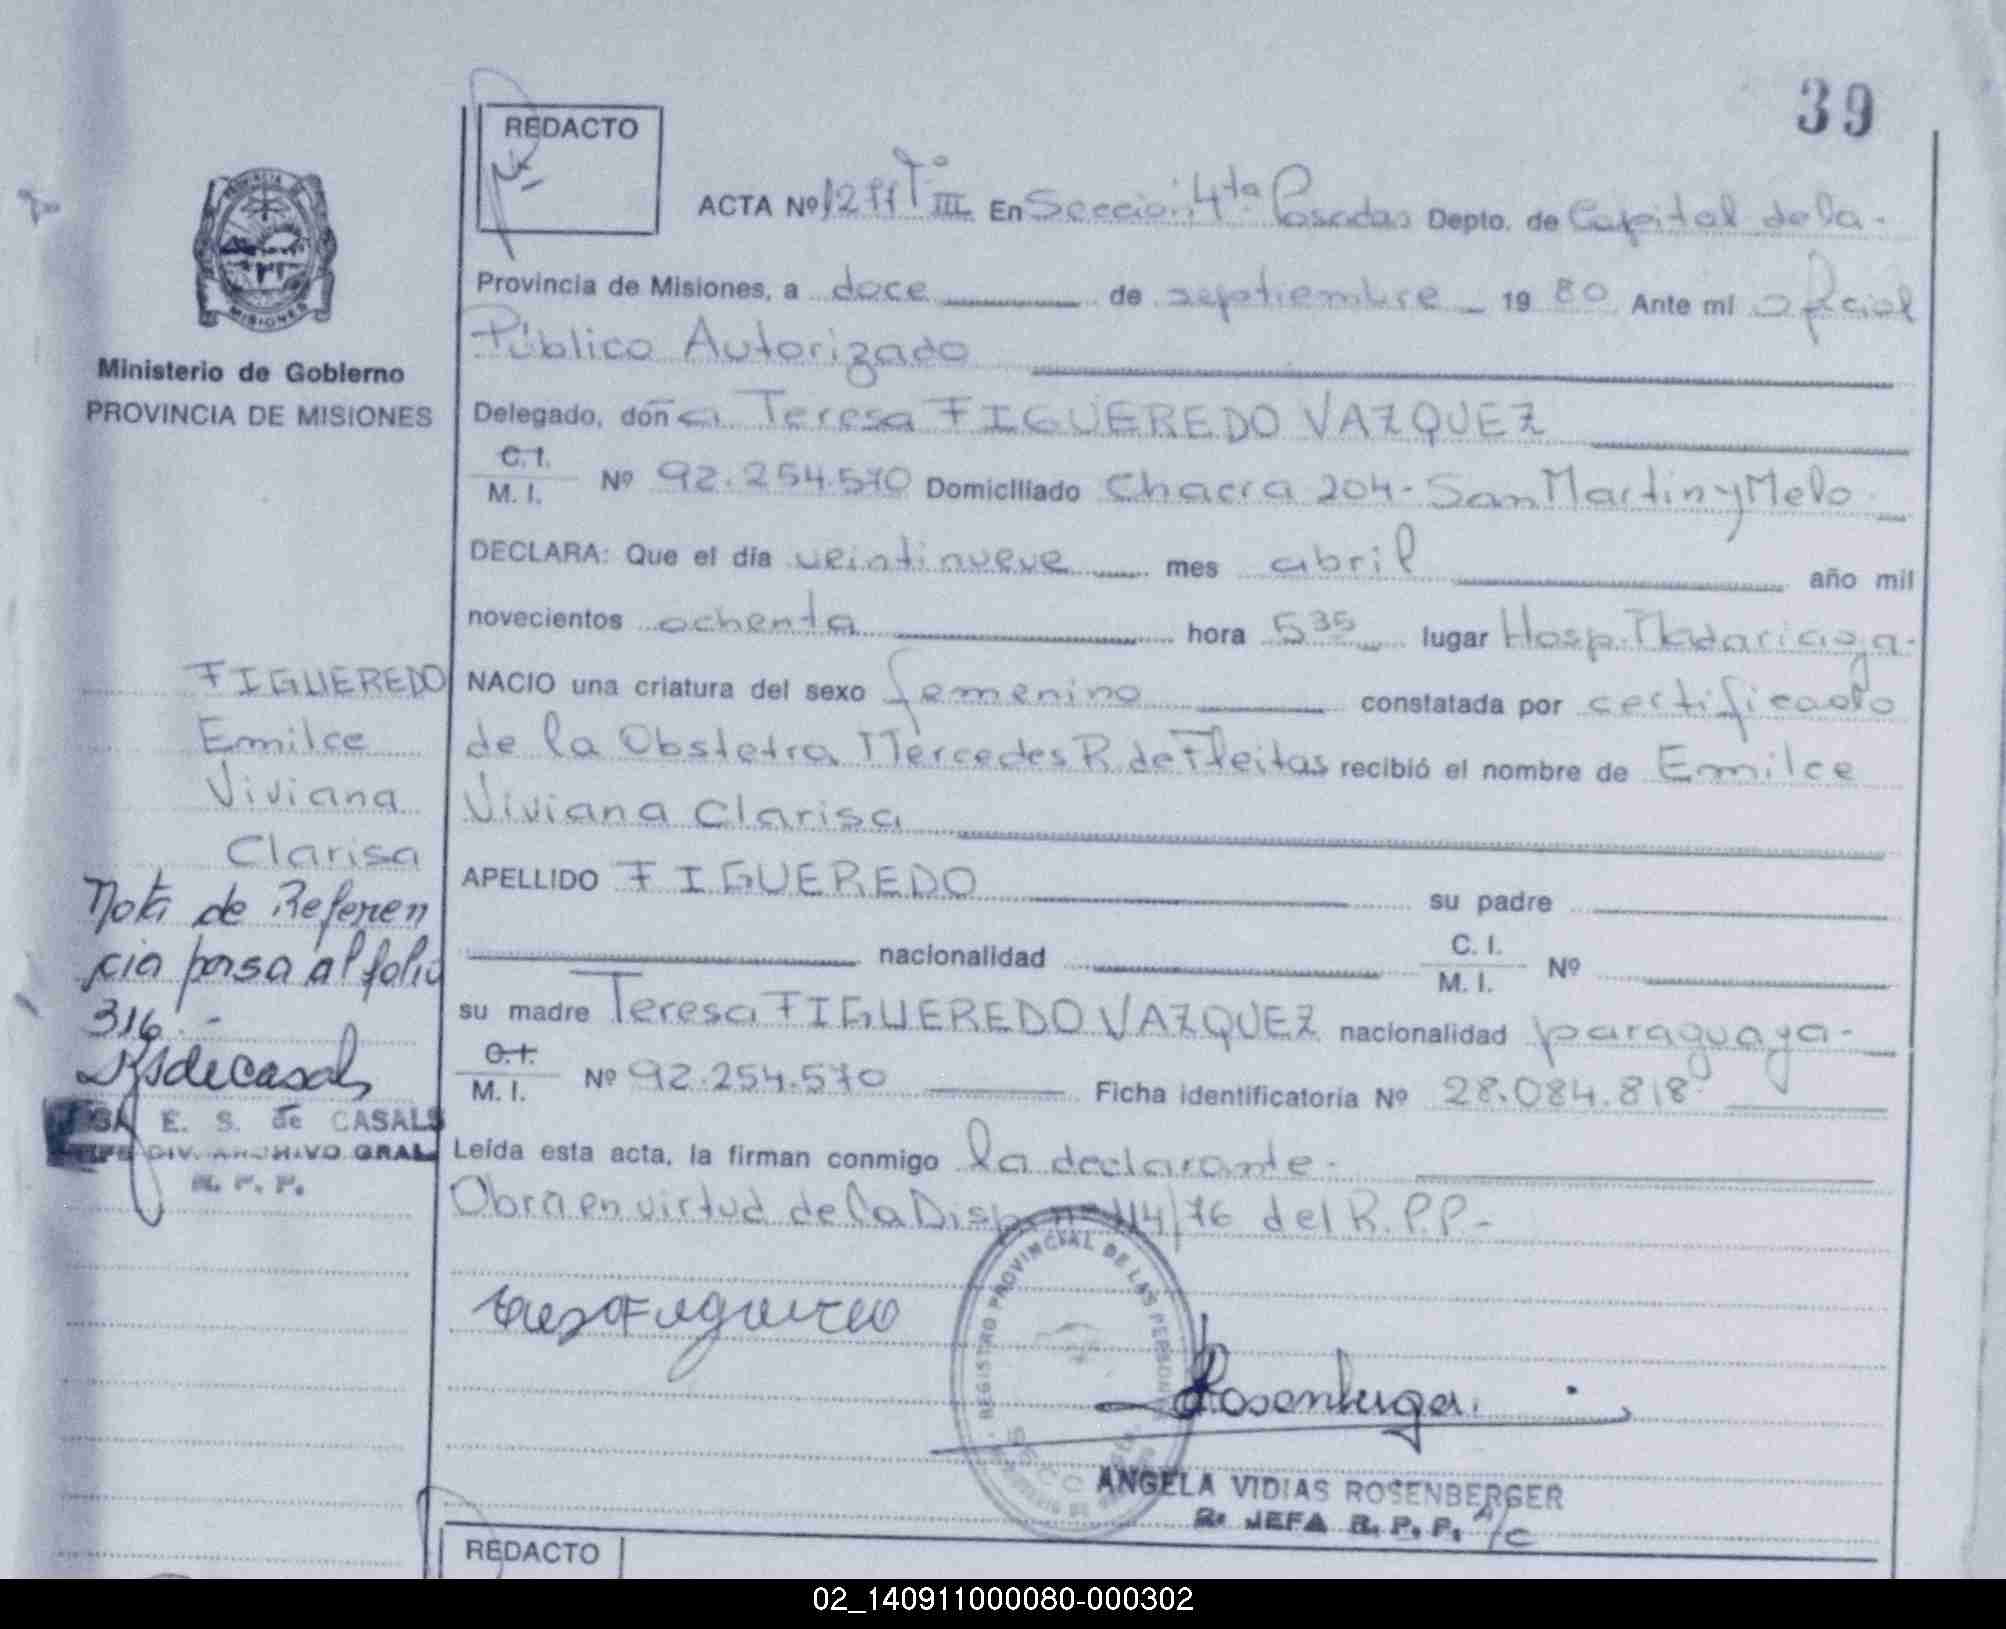 39
REDACTO
ACTA Nº 1277 Tº III En Sección 4ta Posadas Depto. de Capital de la -
Provincia de Misiones, a doce de septiembre 1980 Ante mi oficial
Público Autorizado
Delegado, doña Teresa FIGUEREDO VAZQUEZ
C. I.
M. I. Nº 92.254.570 Domiciliado Chacra 204 - San Martin y Melo
DECLARA: Que el día veintinueve mes abril año mil
novecientos ochenta hora 5 35 lugar Hosp. Madariaga -
NACIO una criatura del sexo femenino constatada por certificado
de la Obstetra Mercedes R. de Fleitas recibió el nombre de Emilce
Viviana Clarisa
APELLIDO FIGUEREDO su padre
nacionalidad C. I.
M. I. Nº
su madre Teresa FIGUEREDO VAZQUEZ nacionalidad paraguaya -
C. I.
M. I. Nº 92.254.570 Ficha identificatoria Nº 28.084.818
Leída esta acta, la firman conmigo la declarante -
Obra en virtud de la Disp. nº 114/76 del R.P.P. -
REGISTRO PROVINCIAL DE LAS PERSONAS
ANGELA VIDIAS ROSENBERGER
JEFA R. P. P. A/C
REDACTO
PROVINCIA DE
MISIONES
Ministerio de Gobierno
PROVINCIA DE MISIONES
FIGUEREDO
Emilce
Viviana
Clarisa
Nota de Referen
cia pasa al folio
316 . -
E. S. de CASALS
DIV. ARCHIVO GRAL
R. P. P.
02_140911000080-000302